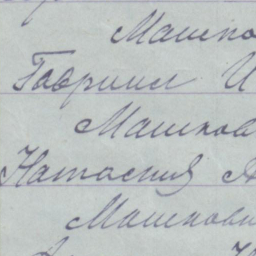 Машко
Гавриил И
Машков
Наталия А
Машкови